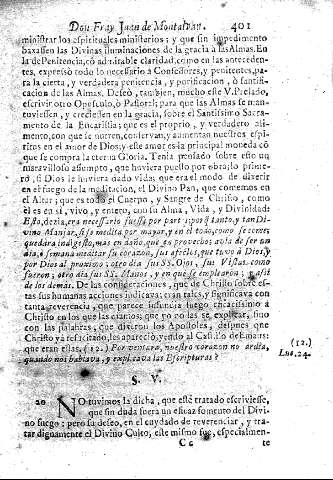 Don Fray Juan de Montalvan. 401
ministrar los espirituales ministerios; y que sin impedimento
baxassen las Divinas iluminaciones de la gracia à las Almas. En
la de Penitencia, cõ admirable claridad, como en las anteceden-
tes, expressò todo lo necessario à Confessores, y penitentes, pa-
ra la cierta, y verdadera penitencia, y purificacion, ò santifi-
cacion de las Almas. Deseò, tambien, mucho este V. Prelado,
escrivir otro Opusculo, ò Pastoral; para que las Almas se man-
tuviessen, y creciessen en la gracia, sobre el Santissimo Sacra-
mento de la Eucaristia; que es el proprio, y verdadero ali-
mento, con que se nutren, conservan, y aumentan nuestros espi-
ritus en el amor de Dios; y este amor es la principal moneda cõ
que se compra la eterna Gloria. Tenia pensado sobre este un
maravilloso assumpto, que huviera puesto por obra; lo prime-
ro, si Dios le huviera dado vida: que era el modo de divertir
en el fuego de la meditacion, el Divino Pan, que comemos en
el Altar; que es todo el Cuerpo, y Sangre de Christo, como
èl es en sì, vivo, y entero, con su Alma, Vida, y Divinidad:
Esto, dezia, era necessario fuesse por partes; porq̃ tanto, y tan Di-
vino Manjar, si se medita por mayor, y en el todo, como se comes
quedarà indigesto, mas en daño, que en provecho: avia de ser un
dia, ò semana meditar su corazon, sus afectos, que tuvo à Dios, y
por Dios al proximo: otro dia sus SS. Ojos, sus Vistas como
fueron; otro dia sus SS. Manos, y en que se emplearon; y assi
de los demàs. De las consideraciones, que de Christo sobre es-
tas sus humanas acciones indicava; eran tales, y significava con
tanta reverencia, que parece infundia fuego encarissimo à
Christo en los que las oiamos; que yo no las se explicar, sino
con las palabras, que dixeron los Apostoles, despues que
Christo ya resucitado, les apareciò, yendo al Castillo de Emaus:
que eran ellas. (12.) Por ventura, nuestro corazon no ardia,
quando nos hablava, y explicava las Escripturas?
(12.)
Luc. 24.
§. V.
20 NO tuvimos la dicha, que este tratado escriviesse,
que sin duda fuera un eficaz fomento del Divi-
no fuego: pero su deseo, en el cuydado de reverenciar, y tra-
tar dignamente el Divino Culto, este mismo fue, especialmen-
Cc te